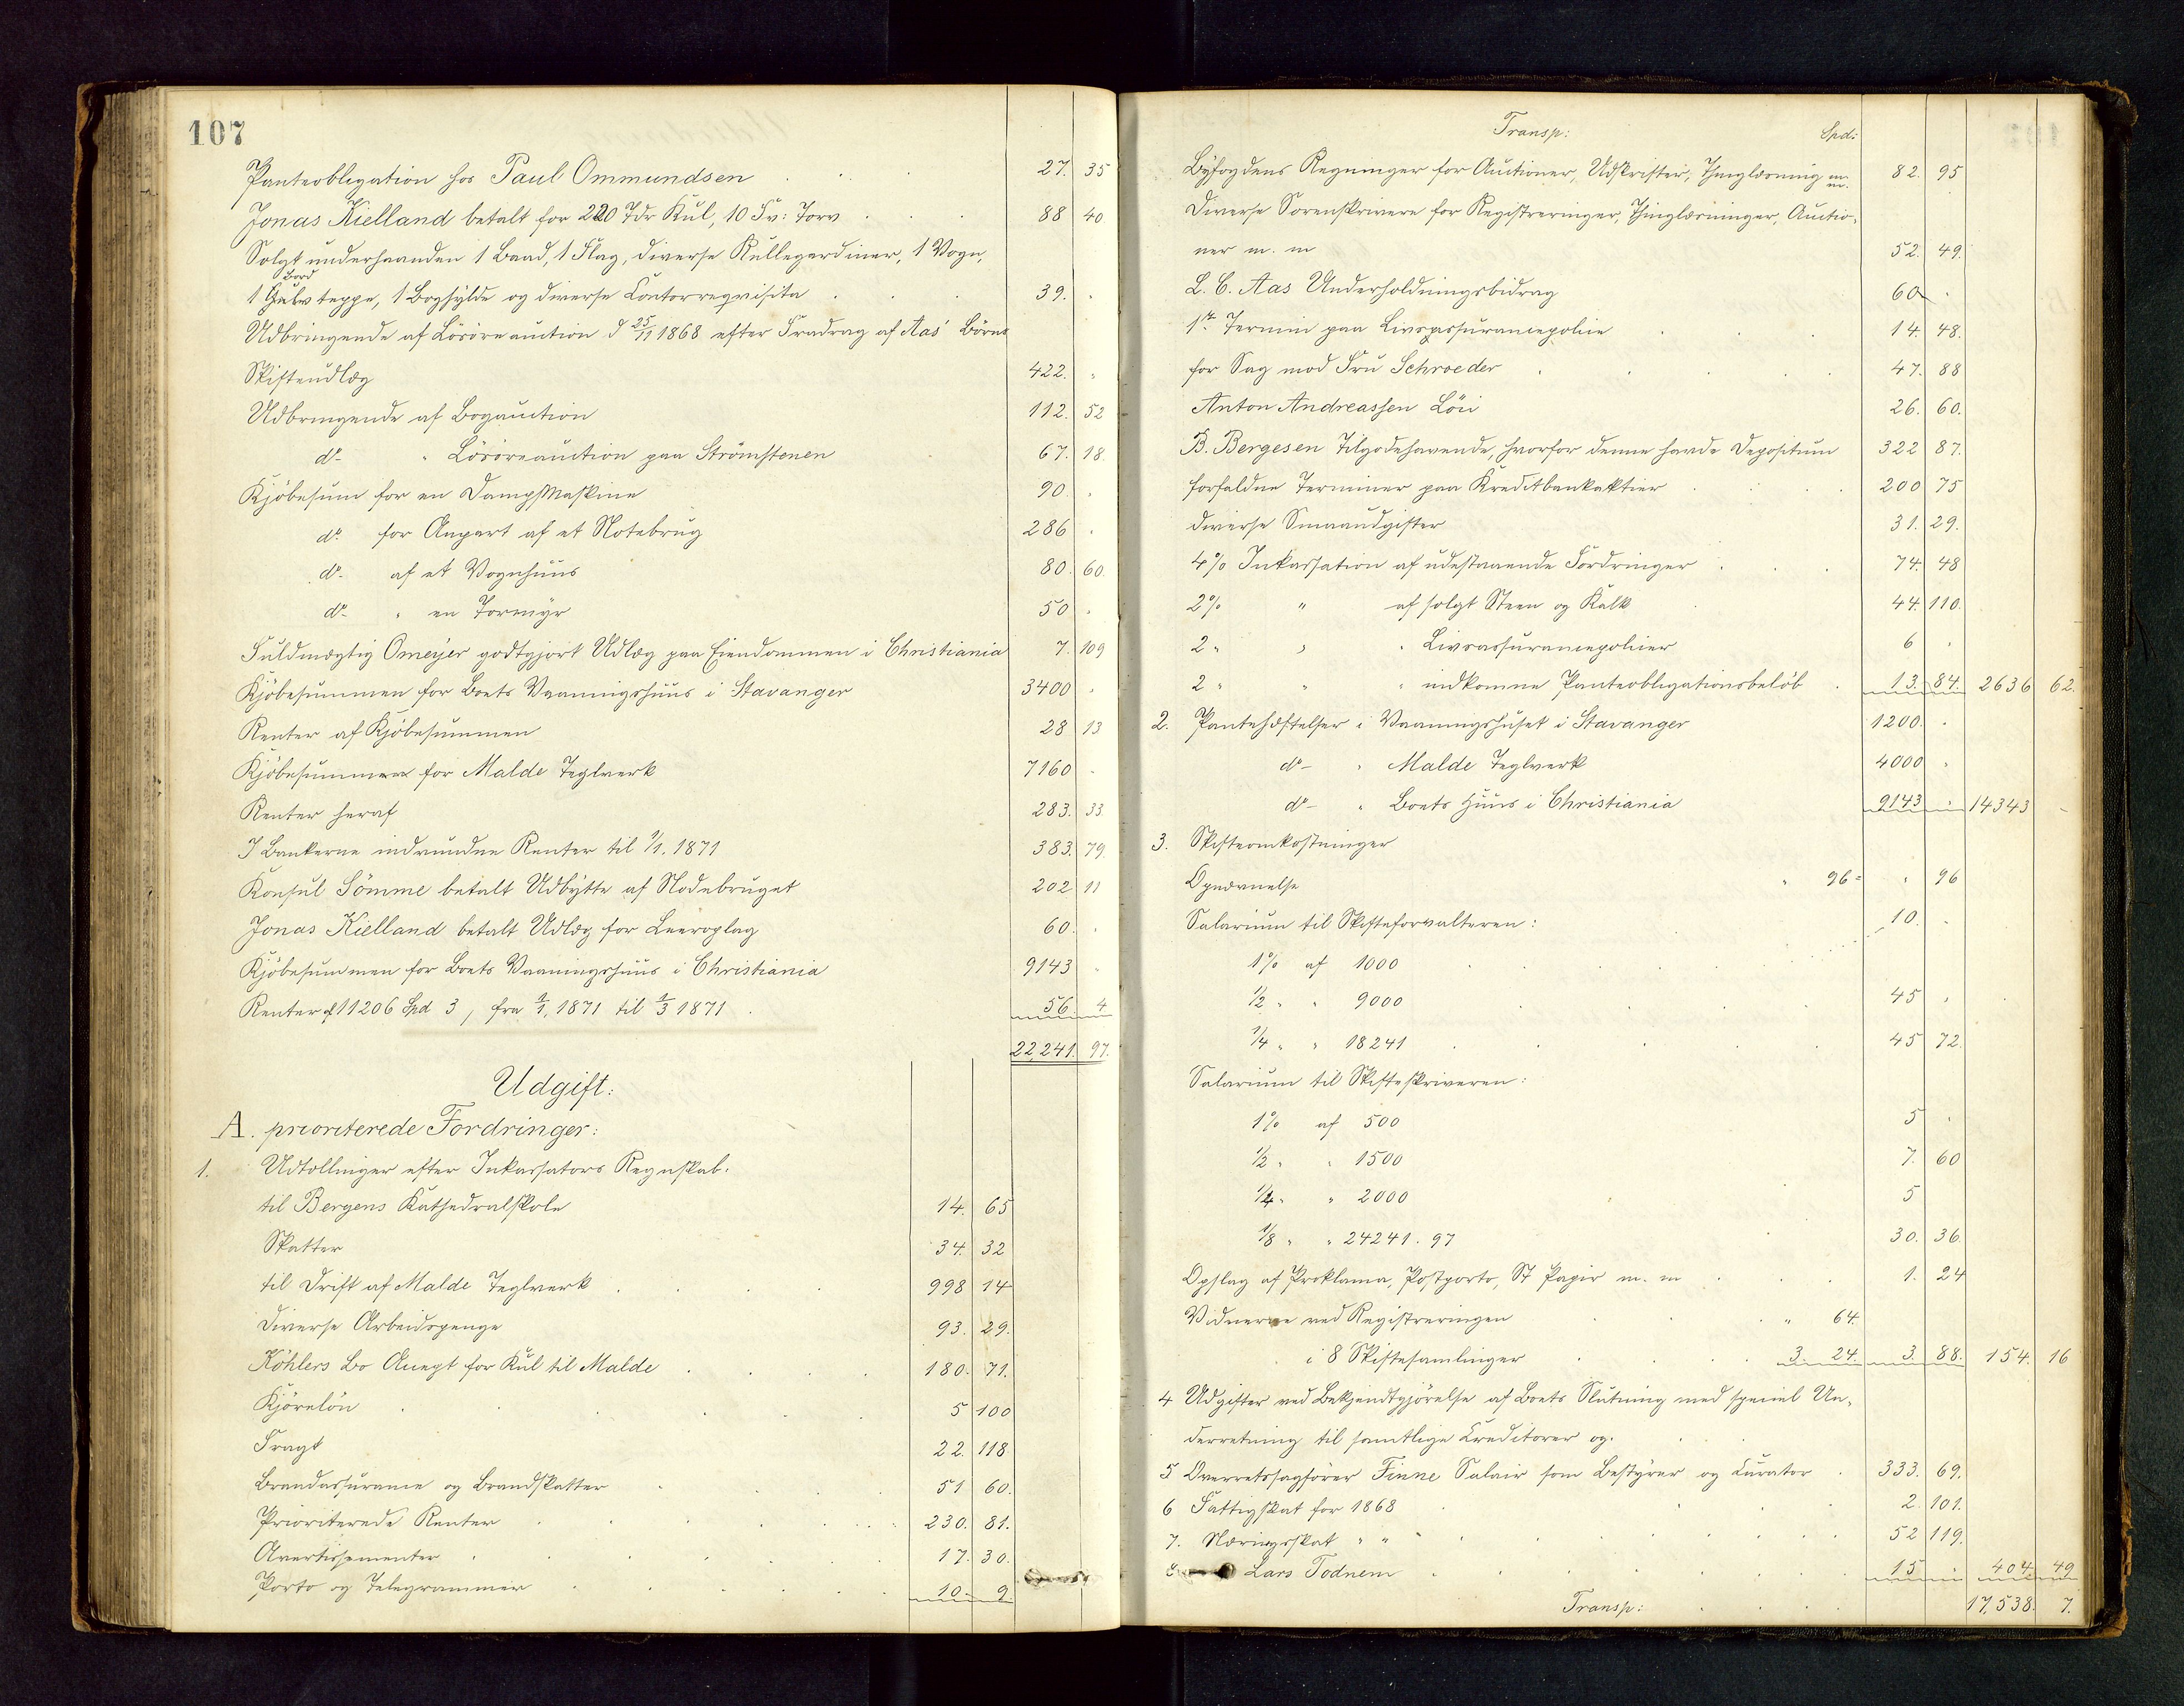 107
Panteobligation hos Paul Ommundsen 27. 35
Jonas Kielland betalt for 220 Tdr Kul, 10 Fv: Torv 88 40
Solgt underhaanden 1 Baad, 1 Flag, diverse Rullegardiner, 1 Vogn,
Bord
1 Gulv teppe, 1 Boghylde og diverse Contorreqvisita 39. "
Udbringende af Lösöreauction d 25/11 1868 efter Fradrag af Aas' Börns
Skifteudlæg 422. "
Udbringende af Bogauction 112. 52
do " Lösöreauction paa Strömstenen 67. 18.
Kjöbesum for en Dampmaskine 90. "
do for Anpart af et Notebrug 286 "
do af et Vognhuus 80. 60.
do " en Torvmyr 50 "
Fuldmægtig Omeyer godtgjort Udlæg paa Eiendommen i Christiania 7. 109
Kjöbesummen for Boets Vaaningshuus i Stavanger 3400 "
Renter af Kjöbesummen 28 13
Kjöbesummen for Malde Teglverk 7160 "
Renter heraf 283. 33
I Bankerne indvundne Renter til 1/1. 1871 383. 79.
Konsul Sömme betalt Udbytte af Nodebruget 202 11
Jonas Kielland betalt Udlæg for Leeroplag 60. "
Kjöbesummen for Boets Vaaningshuus i Christiania 9143 "
Renter af 11206 Spd 3, fra 1/1. 1871 til 1/3 1871 56. 4
22,241. 97.
Udgift:
A. prioriterede Fordringer:
1. Udtællinger efter Inkassators Regnskab.
til Bergens Kathedralskole 14. 65
Skatter 34. 32
til Drift af Malde Teglverk 998 14
Diverse Arbeidspenge 93. 29.
Köhlers Bo Auegt for Kul til Malde 180. 71.
Kjöreløn 5 100
Fragt 22. 118
Brandassurance og Brandskatter 51 60.
Prioriterede Renter 230. 81.
Avertissementer 17. 30.
Porto og Telegrammer 10. 9.
Transp: Spd:
Byfogdens Regninger for Auctioner, Udskrifter, Thinglæsning m. m. 82. 95
Diverse Sorenskrivere for Registreringer, Thinglæsninger, Auctio-
ner m. m 52. 49.
L. C. Aas Underholdningsbidrag 60 "
1ste Termin paa Livsassurancepolice 14. 48.
for Sag mod Fru Schroeder 47. 88
Anton Andreassen Löii 26. 60.
B. Bergesen Tilgodehavende, hvorfor denne havde Depositum 322 87.
forfaldne Terminer paa Kreditbankaktier 200 75
diverse Smaaudgifter 31. 29.
4% Inkassation af udestaaende Fordringer 74. 48
2% " af solgt Steen og Kalk 44. 110.
2 " " " Livsassurancepolicer 6 "
2 " " " indkomne Panteobligationsbelöb 13. 84. 2636 62.
2. Pantehæftelser i Vaaningshuset i Stavanger 1200. "
do " Malde Teglverk 4000 "
do " Boets Huus i Christiania 9143 " 14343 "
3. Skifteomkostninger
Opnævnelse " 96= " 96
Salarium til Skifteforvalteren: 10. "
1% af 1000
1/2 " " 9000 45 "
1/4 " " 18241 45 72.
Salarium til Skifteskriveren:
1% af 500 5 "
1/2 " " 1500 7. 60
1/4 " " 2000 5
1/8 " " 24241. 97 30. 36.
Opslag af Proklama, Postporto, St Papir m. m 1. 24
Vidnerne ved Registreringen " 64.
i 8 Skiftesamlinger 3. 24. 3. 88. 154. 16
4 Udgifter ved Bekjendtgjörelse af Boets Slutning med speciel Un-
derretning til samtlige Creditorer og.
5 Overretssagförer Finne Salair som Bestyrer og Curator 333. 69.
6 Fattigskat for 1868 2. 101.
7. Næringsskat " " 52 119.
Lars Todnem 15 " 404. 49
Transp: 17,538. 7.